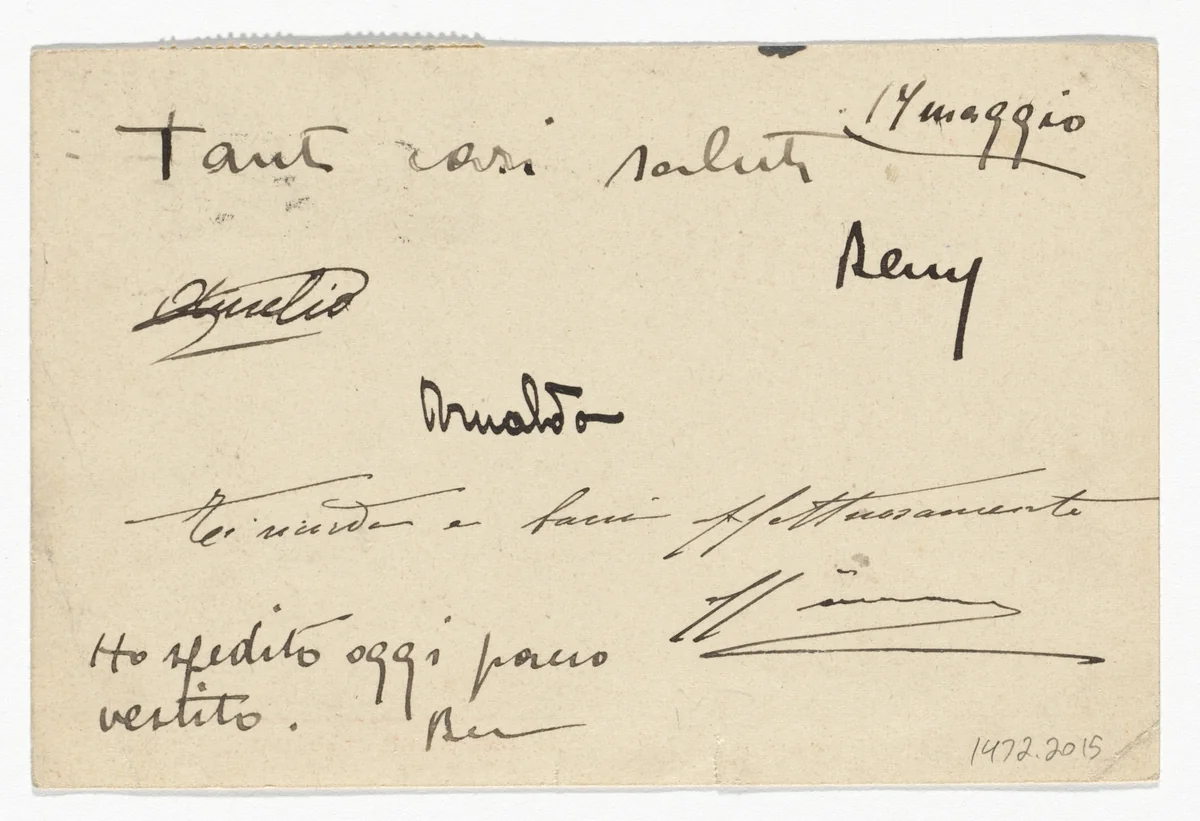 17 maggio
Tanti cari saluti
Beny
Aurelio
Arnaldo
Ti ricorda e baci affettuosamente
Ho spedito oggi pacco
vestito. Ben
1472.2015